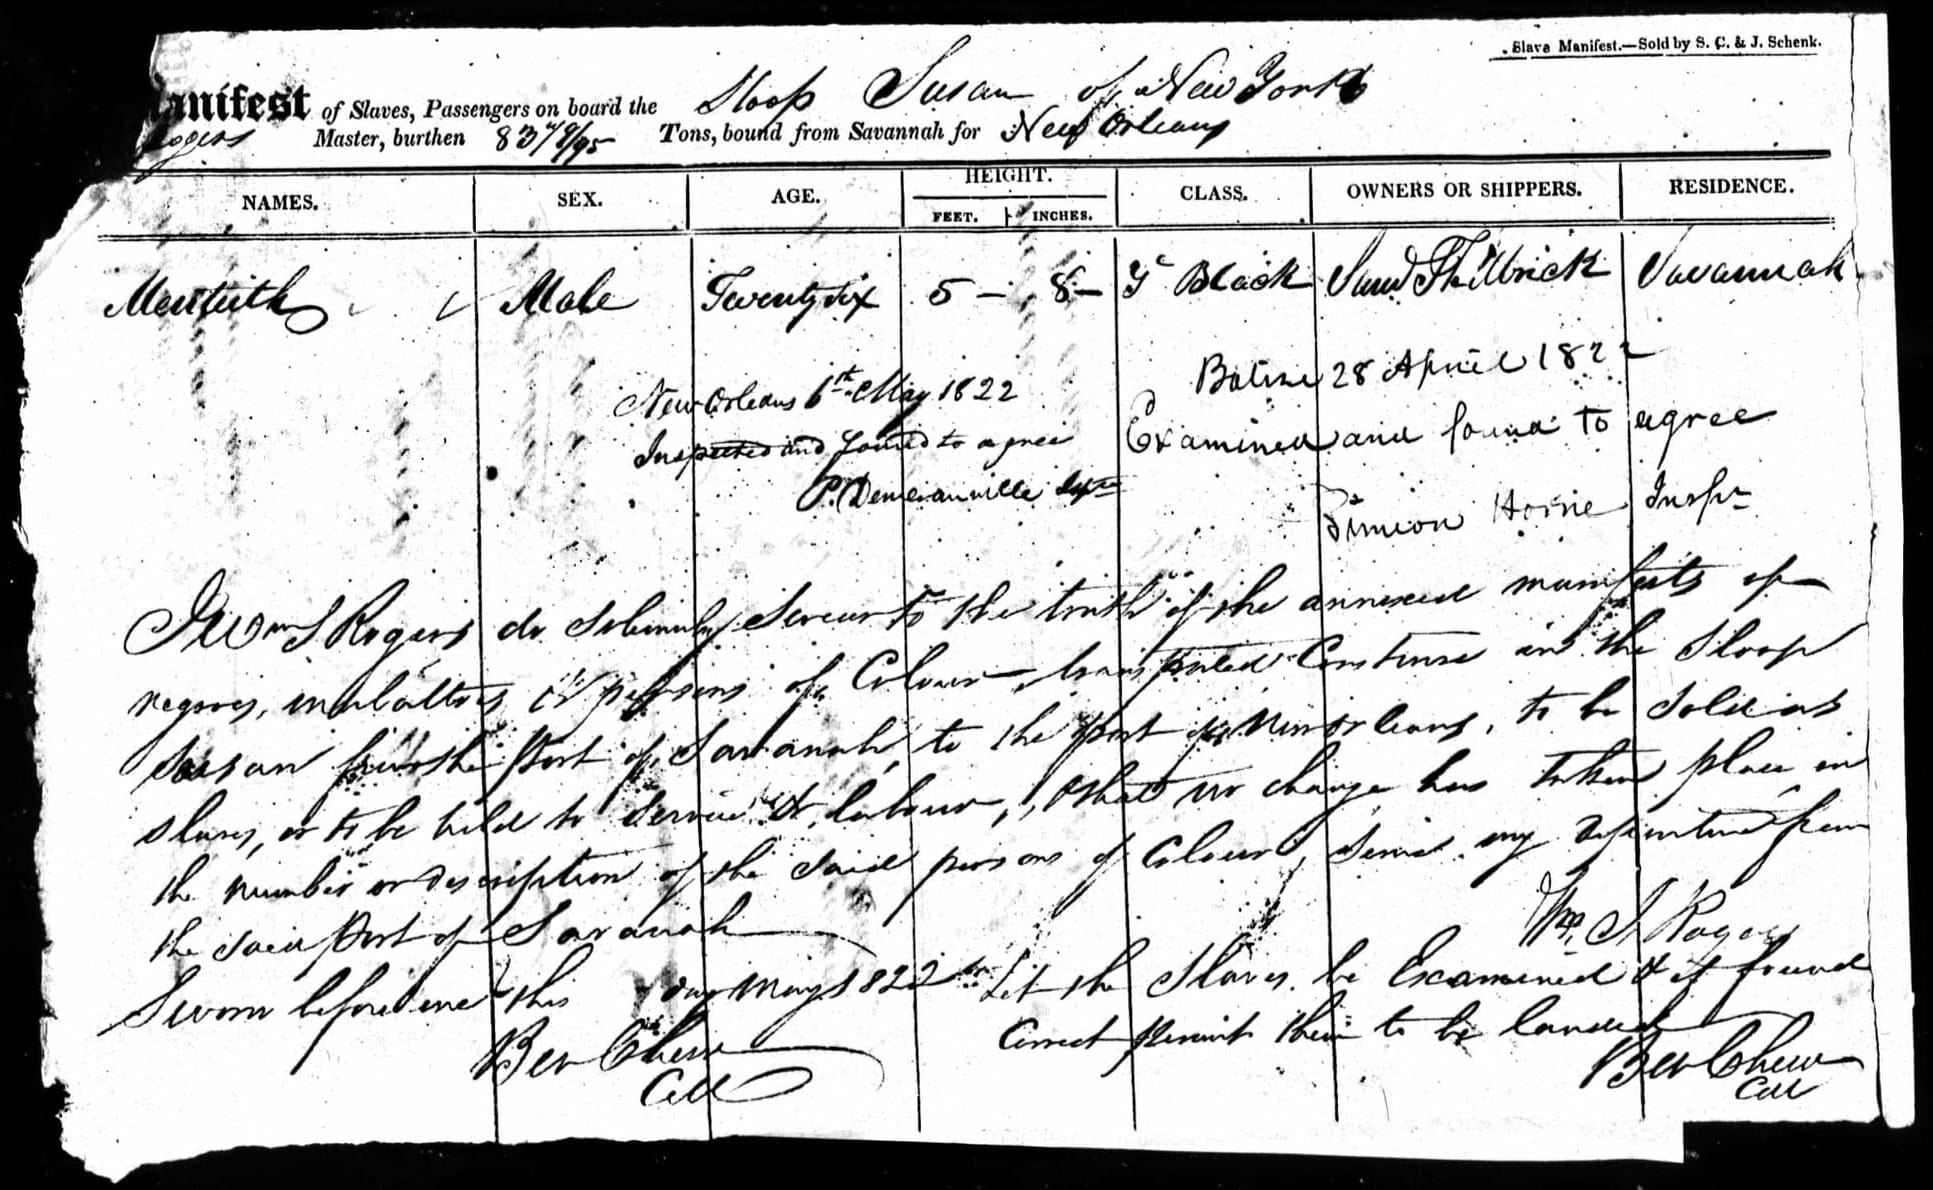 Slave Manifest.—Sold by S. C. & J. Schenk.
Manifest of Slaves, Passengers on board the Sloop Susan of New York
Rogers Master, burthen 83 Tons, bound from Savannah for New Orleans
NAMES. SEX. AGE. HEIGHT. CLASS. OWNERS OR SHIPPERS. RESIDENCE.
FEET. INCHES.
Male Twenty six 5 – 8 – Black Saml Philbrick Savannah
New Orleans May 1822
Inspected and found to agree
28 April 1822
Examined and found to agree
Simion Inspr
I Wm J Rogers do Solemnly Swear to the truth of the annexed manifests of
negroes, mulattoes or persons of Colour, transported Coastwise in the Sloop
Susan from the Port of Savanah, to the port of New Orleans, to be Sold as
slaves, or to be held to Service or labour, & that no change has taken place in
the number or description of the said persons of Colour, Since my departure from
the said Port of Savanah
Wm. J Rogers
Sworn before me this day May 1822
Let the Slaves be Examined & if found
Correct permit them to be landed
Bev Chew
Coll
Bev Chew
Coll